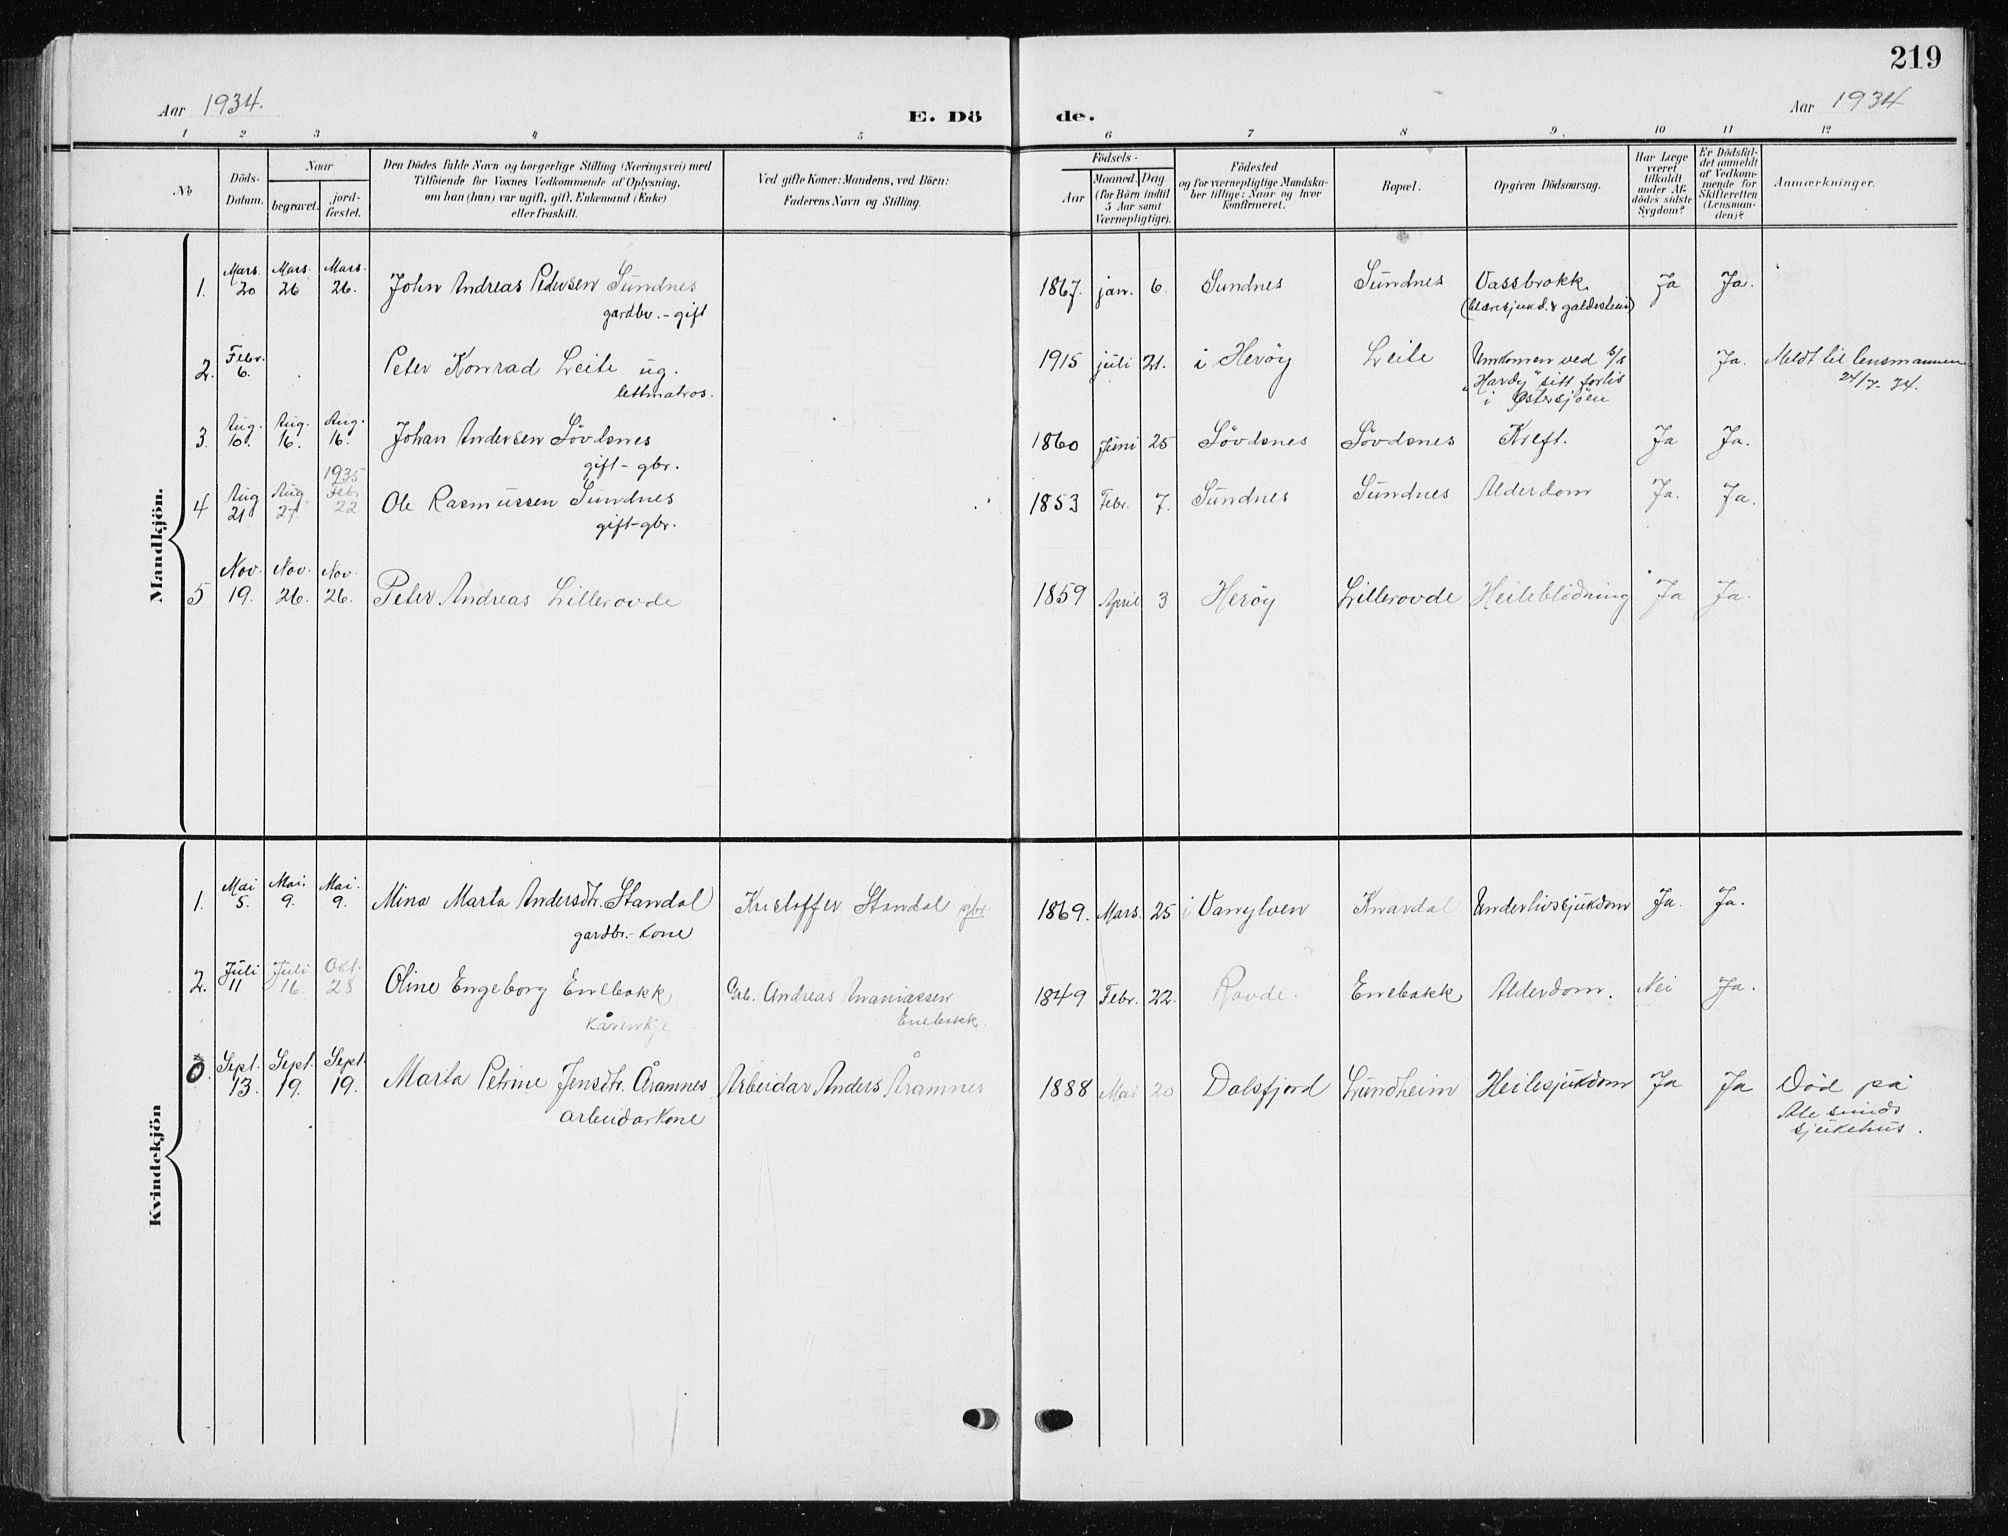 219
Aar 1934.
E. Dö de.
Aar 1934
1 2 3 4 5 6 7 8 9. 10 11 12
No
Döds-Datum.
Naar
begravet.
jord-fæstet.
Den Dödes fulde Navn og borgerlige Stilling (Næringsvei) med
Tilföiende for Voxnes Vedkommende af Oplysning,
om han (hun) var ugift, gift, Enkemand (Enke)
eller fraskilt.
Ved gifte Koner: Mandens, ved Börn:
Faderens Navn og Stilling.
Födsels-
Aar
Maaned. Dag.
(for Börn indtil
5 Aar samt
Værnepligtige).
Födested
og for værnepligtige Mandska-
ber tillige: Naar og hvor
konfirmeret.
Bopæl.
Opgiven Dödsaarsag.
Har Læge
været
tilkaldt
under Af-
dödes sidste
Sygdom?
Er Dödsfal-
det anmeldt
af Vedkom-
mende for
Skifteretten
(Lensman-
den)?
Anmærkninger.
Mandkjön.
1. Mars. 20 Mars. 26 Mars. 26. John Andreas Pedersen Sundnes 1867. jan. 6. Sundnes Sundnes Vassbrokk Ja Ja.
gardbr. - gift
2. Febr. 6. Peter Konrad Leite ug. 1915 juli 21. i Herøy Leite Umkomen ved s/s Ja. Meldt til lensmannen
lettmatros. "Hardy" sitt forlis 24/7-34.
i Østersjøen
3. Aug. 10. Aug. 16. Aug. 16. Johan Andersen Søvdsnes 1860 Juni 25 Søvdsnes Søvdsnes Kreft. Ja Ja.
gift - gbr.
4 Aug 21 Aug 27 1935 Febr 22 Ole Rasmussen Sundnes 1853 Febr. 7. Sundnes Sundnes Alderdom Ja. Ja.
gift-gbr.
5 Nov. 19. Nov. 26. Nov. 26. Peter Andreas Lillerovde 1859 April 3 Herøy Lillerovde Heileblødning Ja Ja.
Kvindekjön
1. Mai 5. Mai. 9. Mai. 9. Mina Marta Andersdtr. Standal Kristoffer Standal gbr. 1869. Mars. 25 i Vanylven Knardal Underlivssjukdom Ja. Ja.
gardbr.-kone
2. Juli 11 Juli 16. Okt. 28 Oline Engeborg Enebakk Grb. Andreas Ananiassen 1849 Febr. 22. Rovde. Enebakk Alderdom. Nei Ja.
kårenkje Enebakk.
Sept. 13. Sept. 19. Sept. 19. Marta Petrine Jensdtr. Åramnes Arbeidar Anders Åramnes 1888 Mai 20 Dalsfjord Lundheim Heilesjukdom Ja Ja Død på
arbeidarkone Ålesunds
sjukehus.